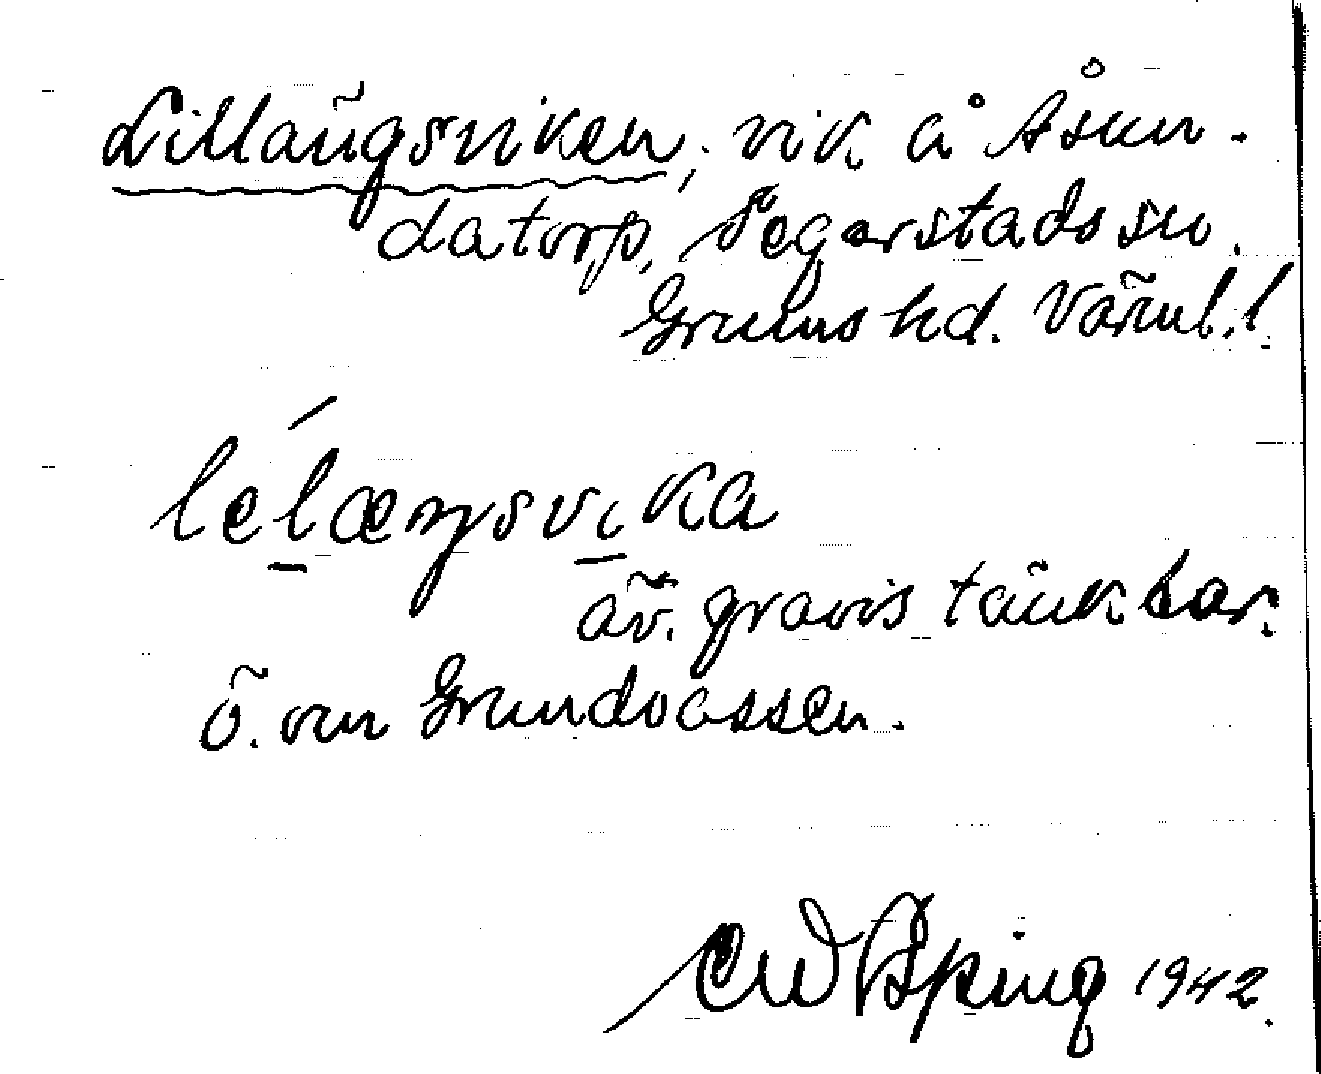 Lillängsviken, vik å Åsun-
datorp, Segerstads sn.
Grums hd. Värml. l.
lelæŋsvika
äv. gravis tänkbar.
ö. om Grundvassen.
1942.